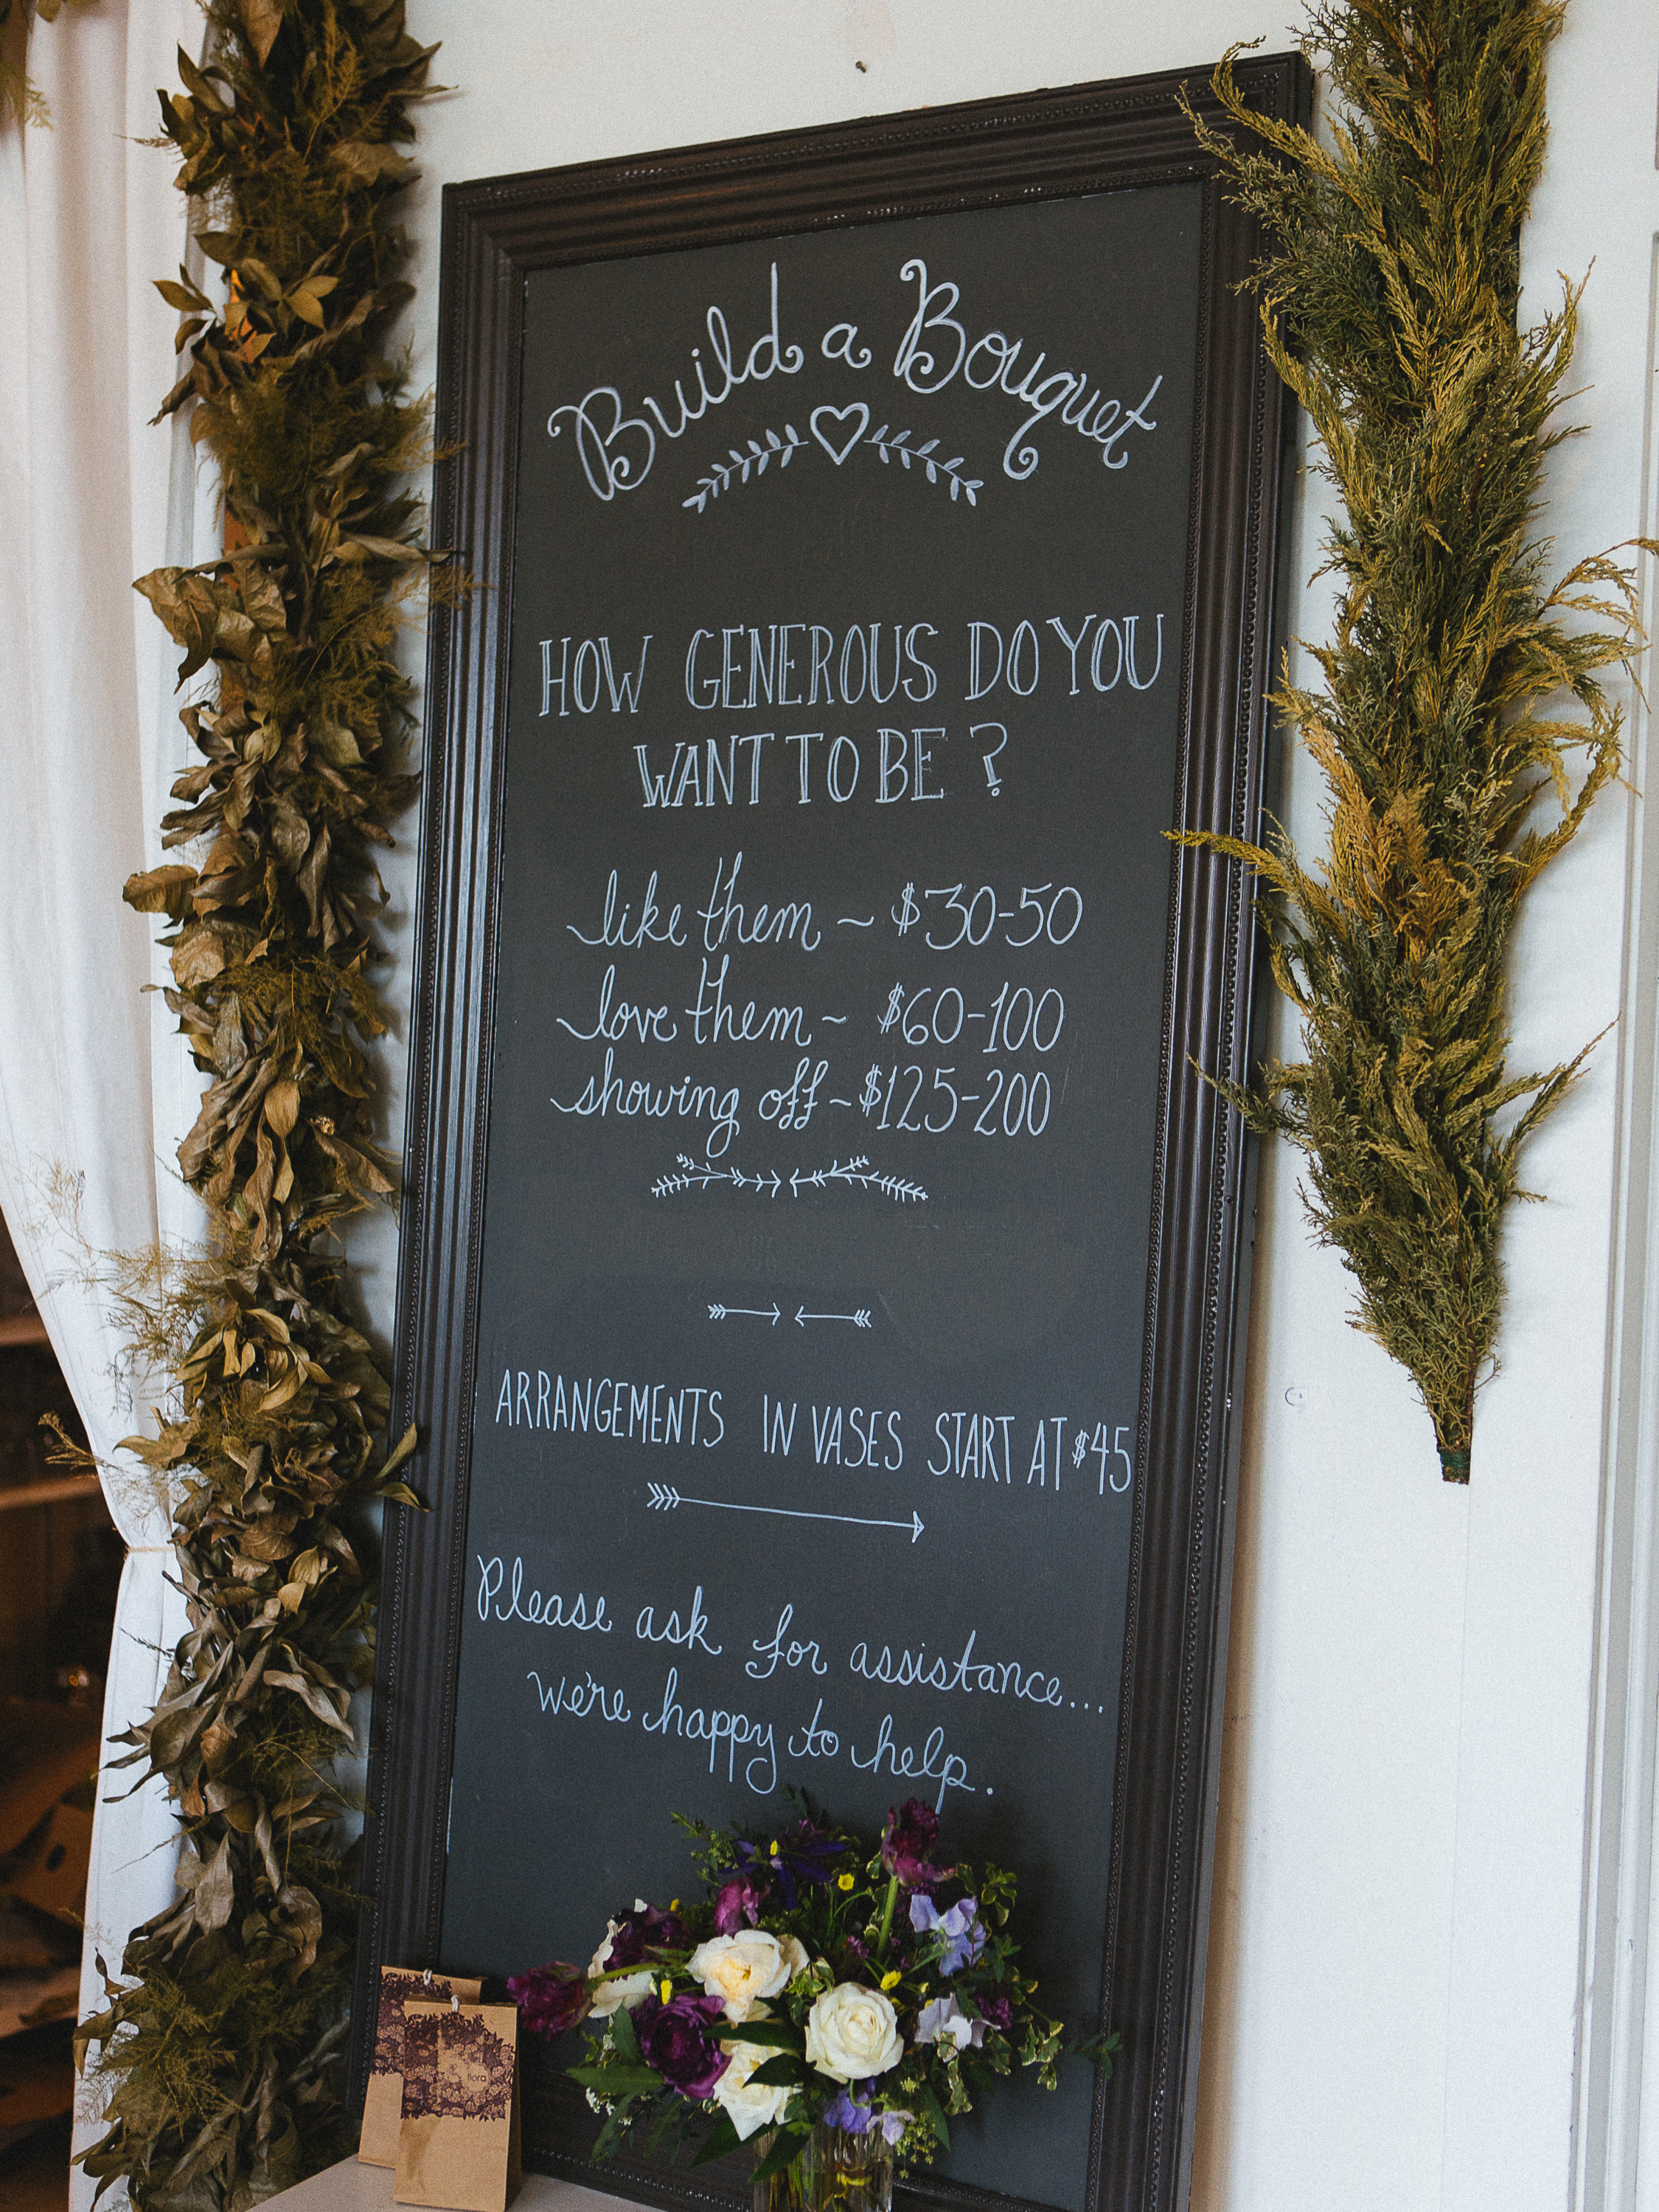 Build a Bouquet
HOW GENEROUS DO YOU
WANT TO BE ?
like them ~ $30-50
love them ~ $60-100
showing off ~ $125-200
ARRANGEMENTS IN VASES START AT $45
Please ask for assistance...
we're happy to help.
flora